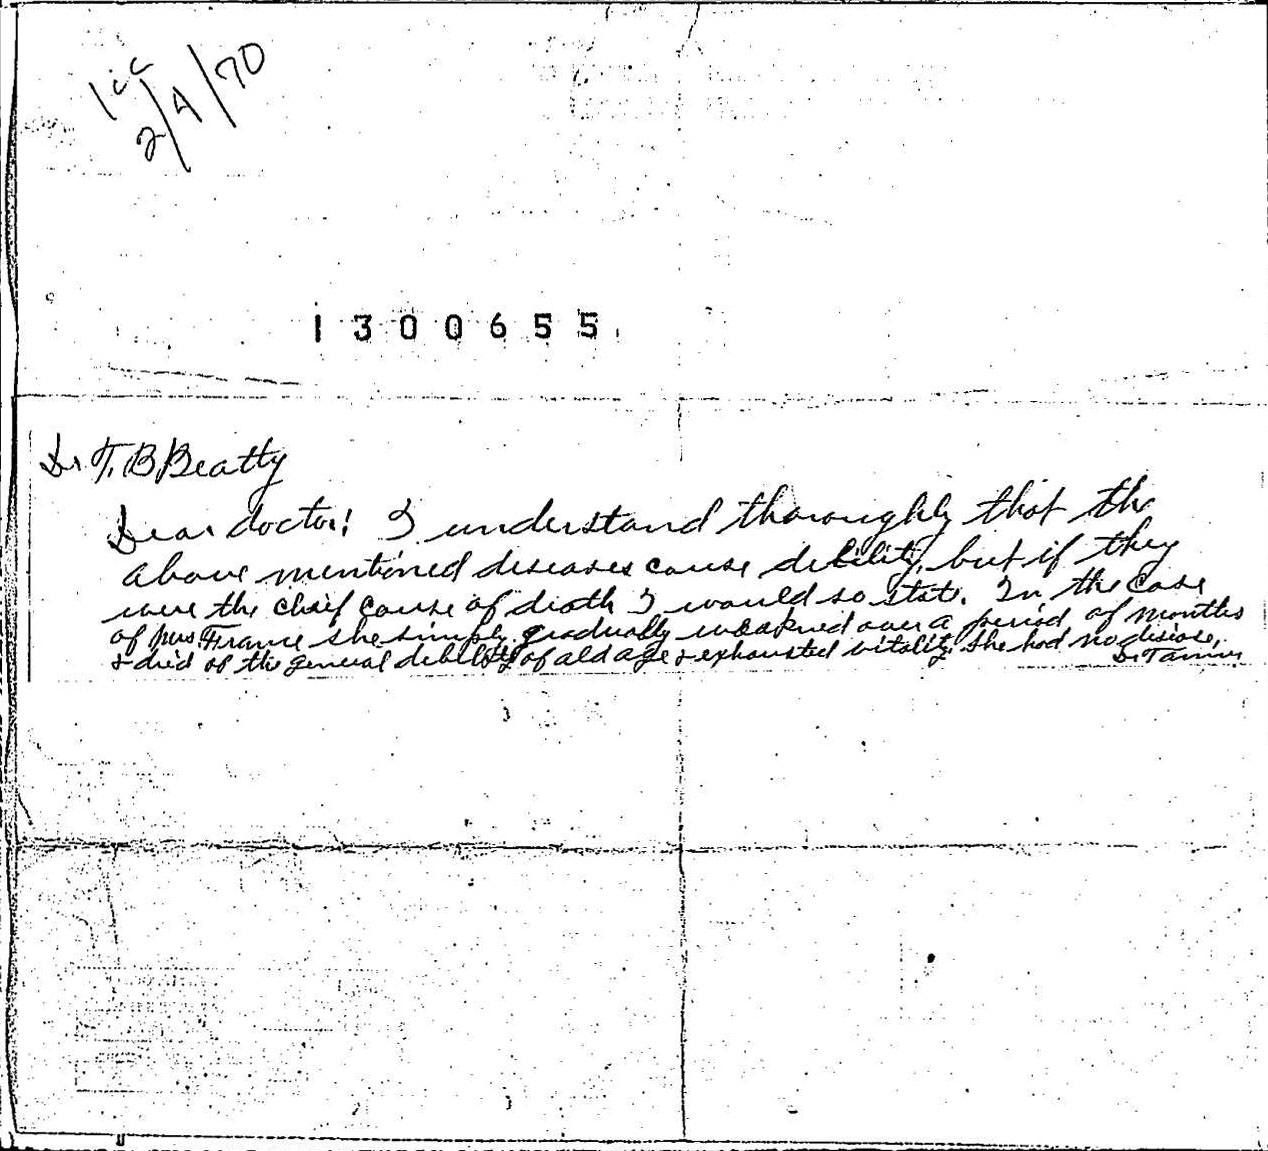 1cc
2/4/70
1300655
Dr T. B Beatty
Dear doctor! I understand thoroughly that the
above mentioned diseases cause debility, but if they
were the chief cause of death I would so state. In the case
of Mrs France she simply gradually weakened over a period of months
& died of the general debility of old age & exhausted vitality. She had no disease,
Dr